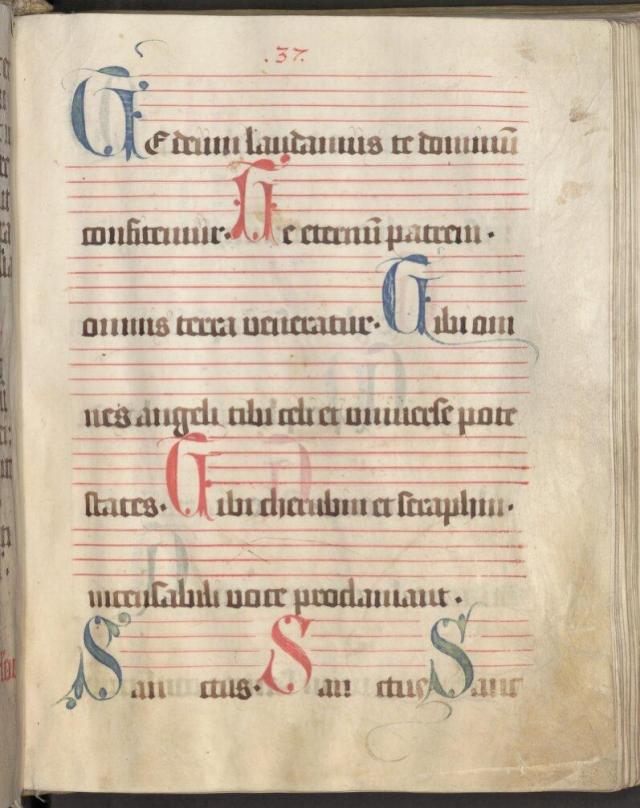 .37.
TE deum laudamus te dominū
confitemur. Te eternū patrem.
omnis terra veneratur. Tibi om
nes angeli tibi celi et vniuerse pote
states. Tibi cherubin et seraphin.
incensabili voce proclamant.
San ctus. San ctus Sanc